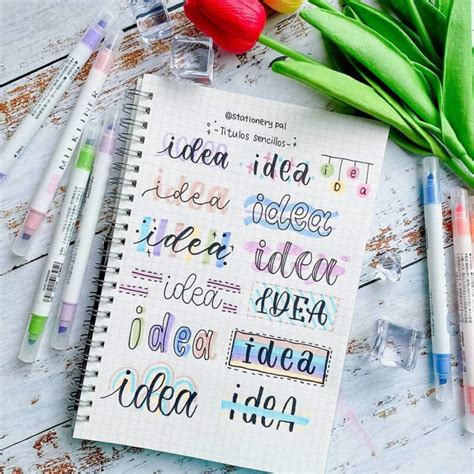 @stationery.pal
-Titulos sencillos-
idea idea idea
idea idea
idea idea
idea IDEA
idea idea
idea ideA